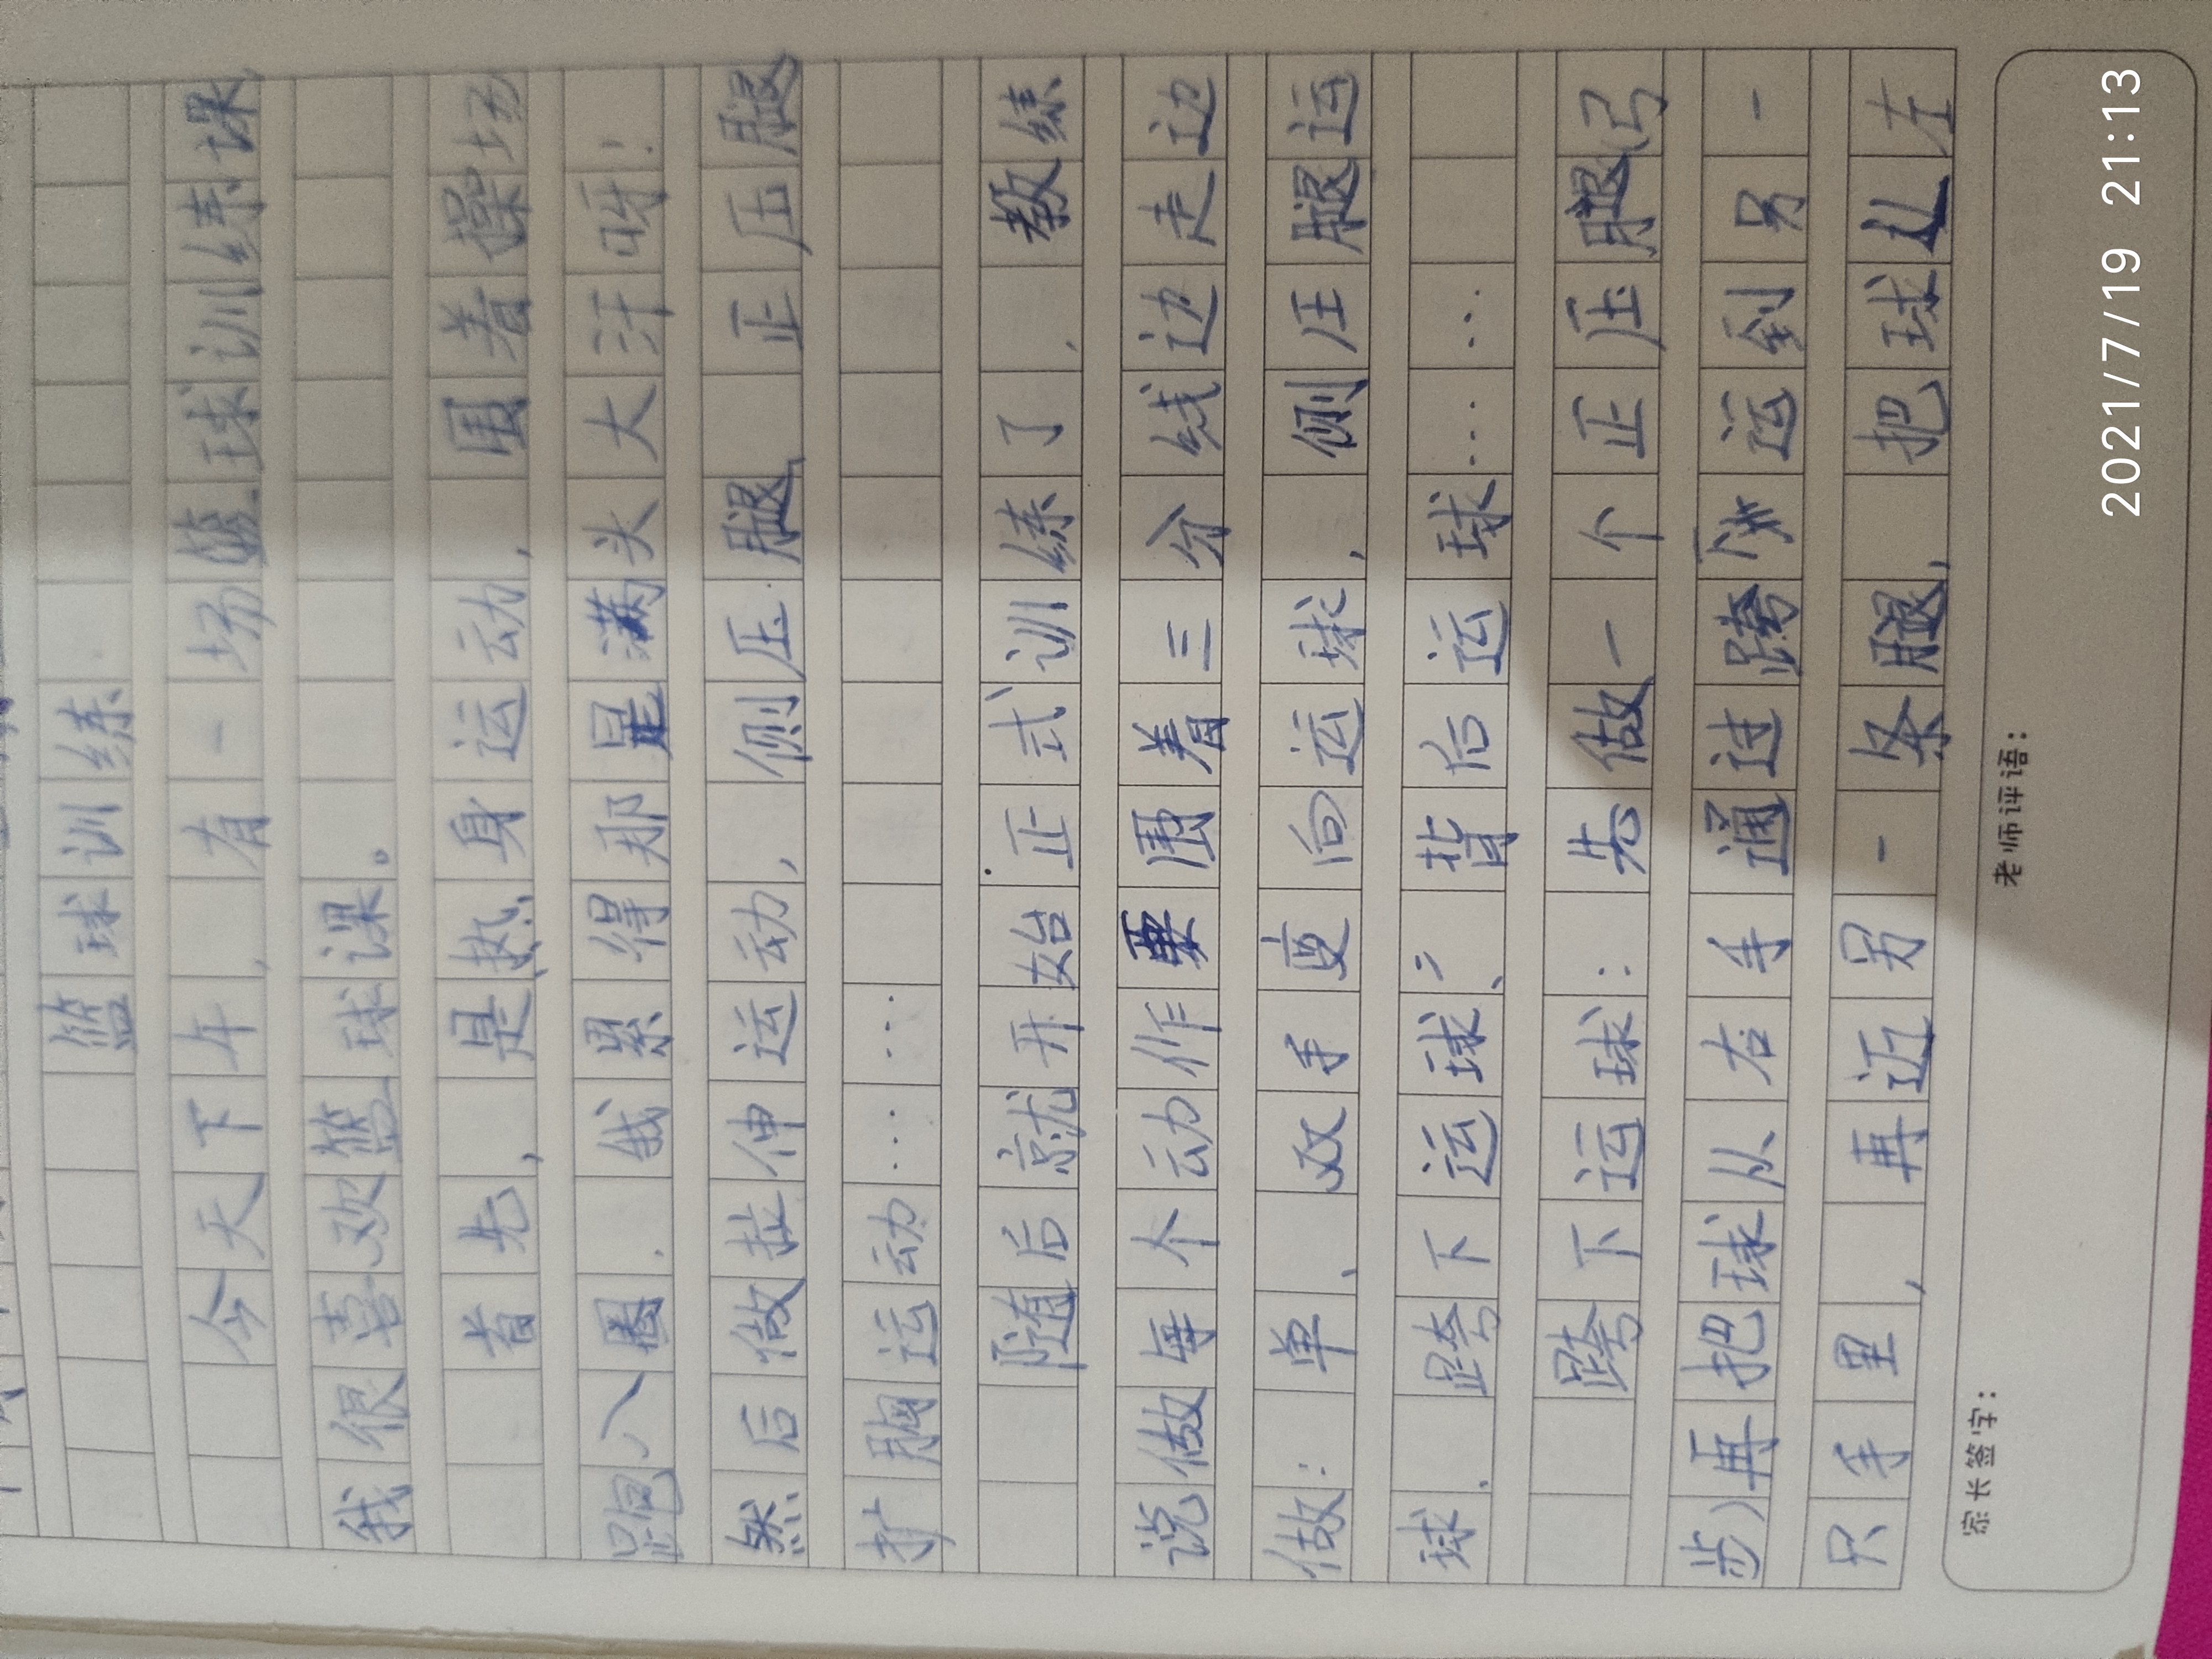 篮球训练
今天下午,有一场篮球训练课
我很喜欢篮球课。
首先,是热身运动,围着操场
跑八圈.我累得那是满头大汗呀!
然后做拉伸运动,侧压腿、正压腿
扩胸运动……
随后就开始正式训练了.教练
说做每个动作要围着三分线边走边
做:单、双手变向运球,侧压腿运
球.跨下运球、背后运球……
跨下运球:先做一个正压腿(弓
步)再把球从右手通过跨下运到另一
只手里,再迈另一条腿,把球从左
家长签字:
老师评语:
2021/7/19 21:13